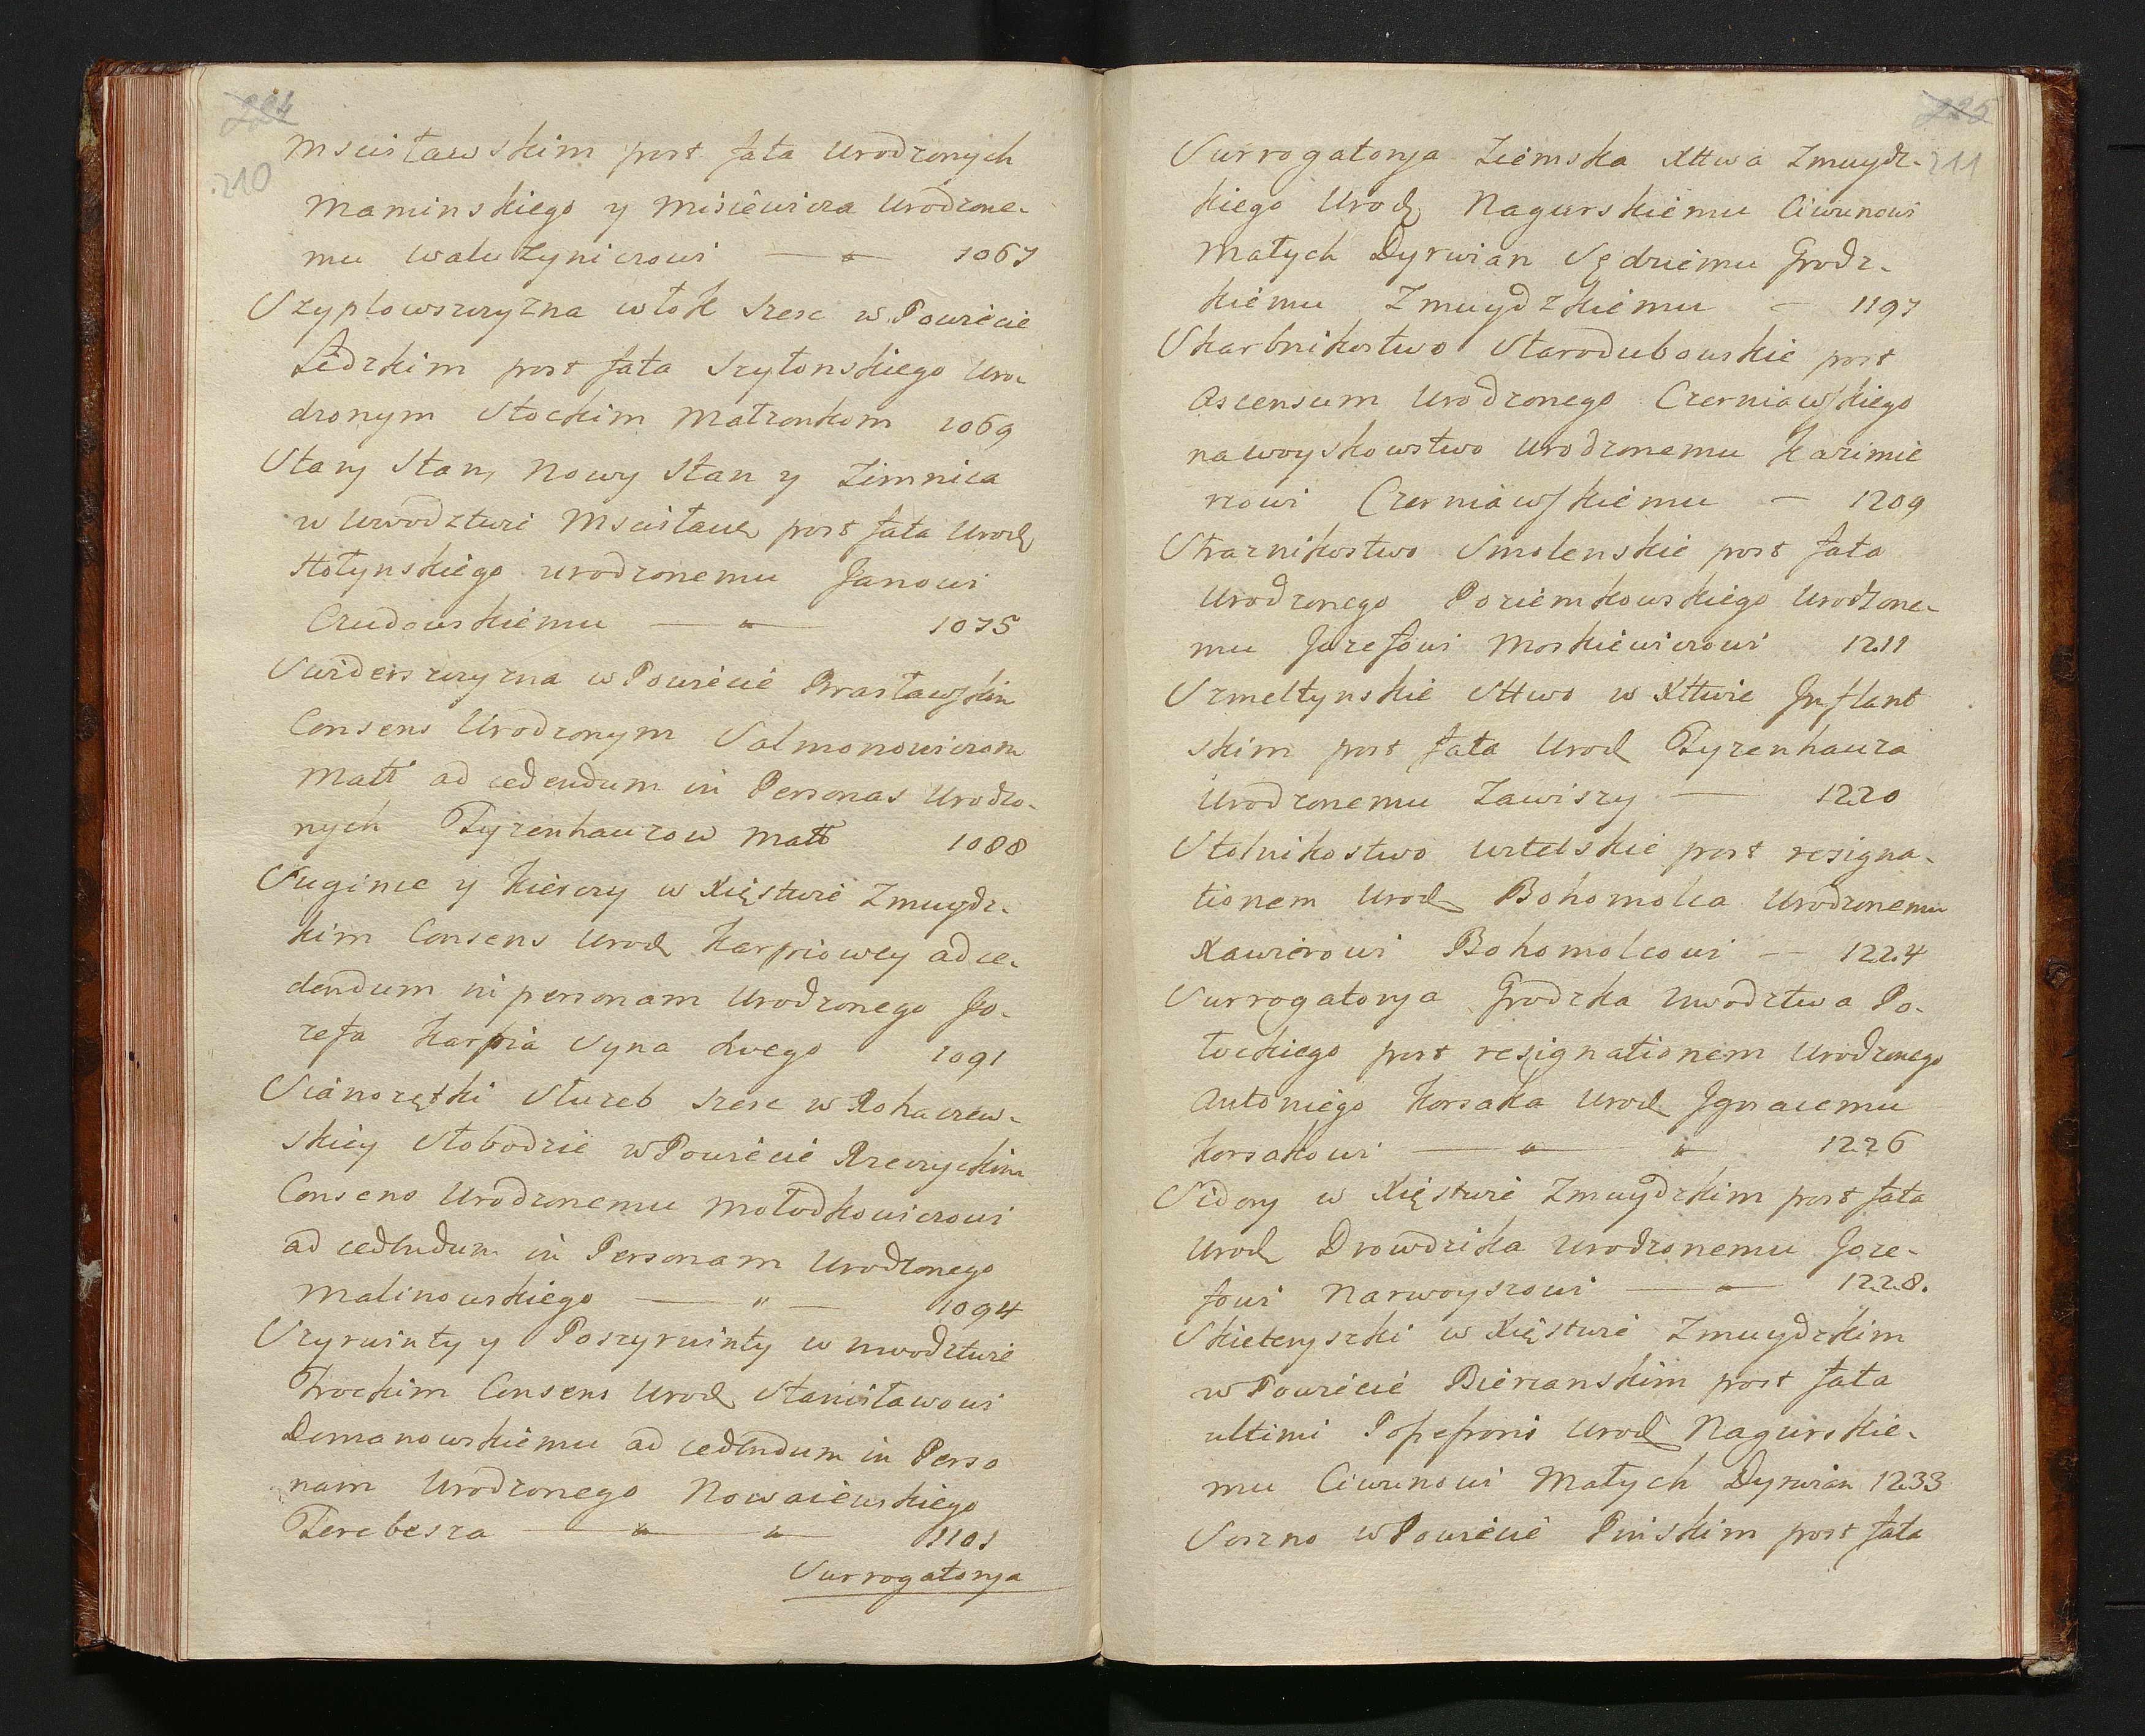 224
210
Mscisławskim post fata Urodzonych
Maminskiego y Misiewicza Urodzone-
mu Walużyniczowi — " — 1067
Szyplowszczyzna włok szesc w Powiecie
Lidzkim post fata Szytonskiego Uro-
dzonym Stockim Małżonkom 1069
Stary Stan, Nowy Stan y Zimnica
w Uwodztwie Mscisław post fata Urodz
Hołynskiego urodzonemu Janowi
Czudowskiemu — " — 1075
Swiderszczyzna w Powiecie Brasławskim
Consens Urodzonym Salmonowiczom
Matt ad cedendum in Personas Urodzo-
nych Tyzenhauzow Matt 1088
Suginie y Kiesczy w Xięstwie Zmuydz-
kim Consens Urodz Karpiowey ad ce-
dendum in personam Urodzonego Jo-
zefa Karpia Syna swego 1091
Sianożętki Służeb szesc w Rohaczew-
skiey Słobodzie w Powiecie Rzeczyckim
Consens Urodzonemu Mołodkowiczowi
ad cedendum in Personam Urodzonego
Malinowskiego — " — 1094
Szyrwinty y Poszyrwinty w Uwodztwie
Trockim Consens Urodz Stanisławowi
Domanowskiemu ad cedendum in Perso
nam Urodzonego Nowaiewskiego
Terebesza — " — " 1101
Surrogatorya
225
211
Surrogatorya Ziemska Xttwa Zmuydz-
kiego Urodz Nagurskiemu Ciwunowi
Małych Dyrwian Sędziemu Grodz-
kiemu Zmuydzkiemu — 1197
Skarbnikostwo Starodubowskie post
Ascensum Urodzonego Czerniawskiego
na woyskowstwo Urodzonemu Kazimie
rzowi Czerniawskiemu — 1209
Straznikostwo Smolenskie post fata
Urodzonego Poziemkowskiego Urodzone-
mu Jozefowi Moskiewiczowi 1211
Szmeltynskie Sttwo w Xttwie Inflant
skim post fata Urodz Tyzenhauza
Urodzonemu Zawiszy — 1220
Stolnikostwo Witebskie post resigna-
tionem Urodz Bohomolca Urodzonemu
Xawierowi Bohomolcowi — 1224
Surrogatorya Grodzka Uwodztwa Po-
łockiego post resignationem Urodzonego
Antoniego Korsaka Urodz Jgnacemu
Korsakowi — " — " 1226
Sidory w Xięstwie Zmuydzkim post fata
Urodz Drowdzika Urodzonemu Joze-
fowi Narwoyszowi — " — 1228.
Skieteryszki w Xięstwie Zmuydzkim
w Powiecie Bierzanskim post fata
ultimi Possessoris Urodz Nagurskie-
mu Ciwunowi Małych Dyrwian 1233
Soszno w Powiecie Pinskim post fata